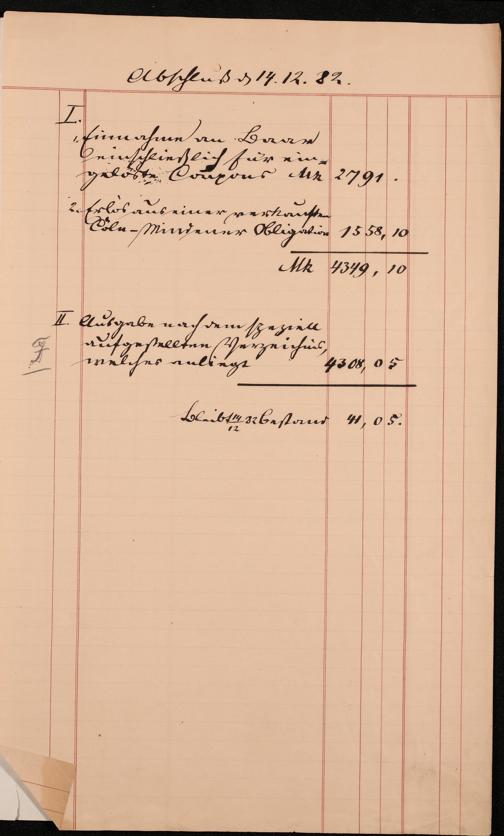 Abschluß d 14.12.82.
I.
1, Einnahme an Baar
einschließlich für ein-
gelöste Coupons Mk 2791.
2. Erlös aus einer verkauften
Cöln-Mindener Obligation 1558,10
Mk 4349,10
II Ausgabe nach dem speziell
aufgestellten Verzeichniß,
welches anliegt 4308,05
bleibt 14/12 82 Bestand 41,05.